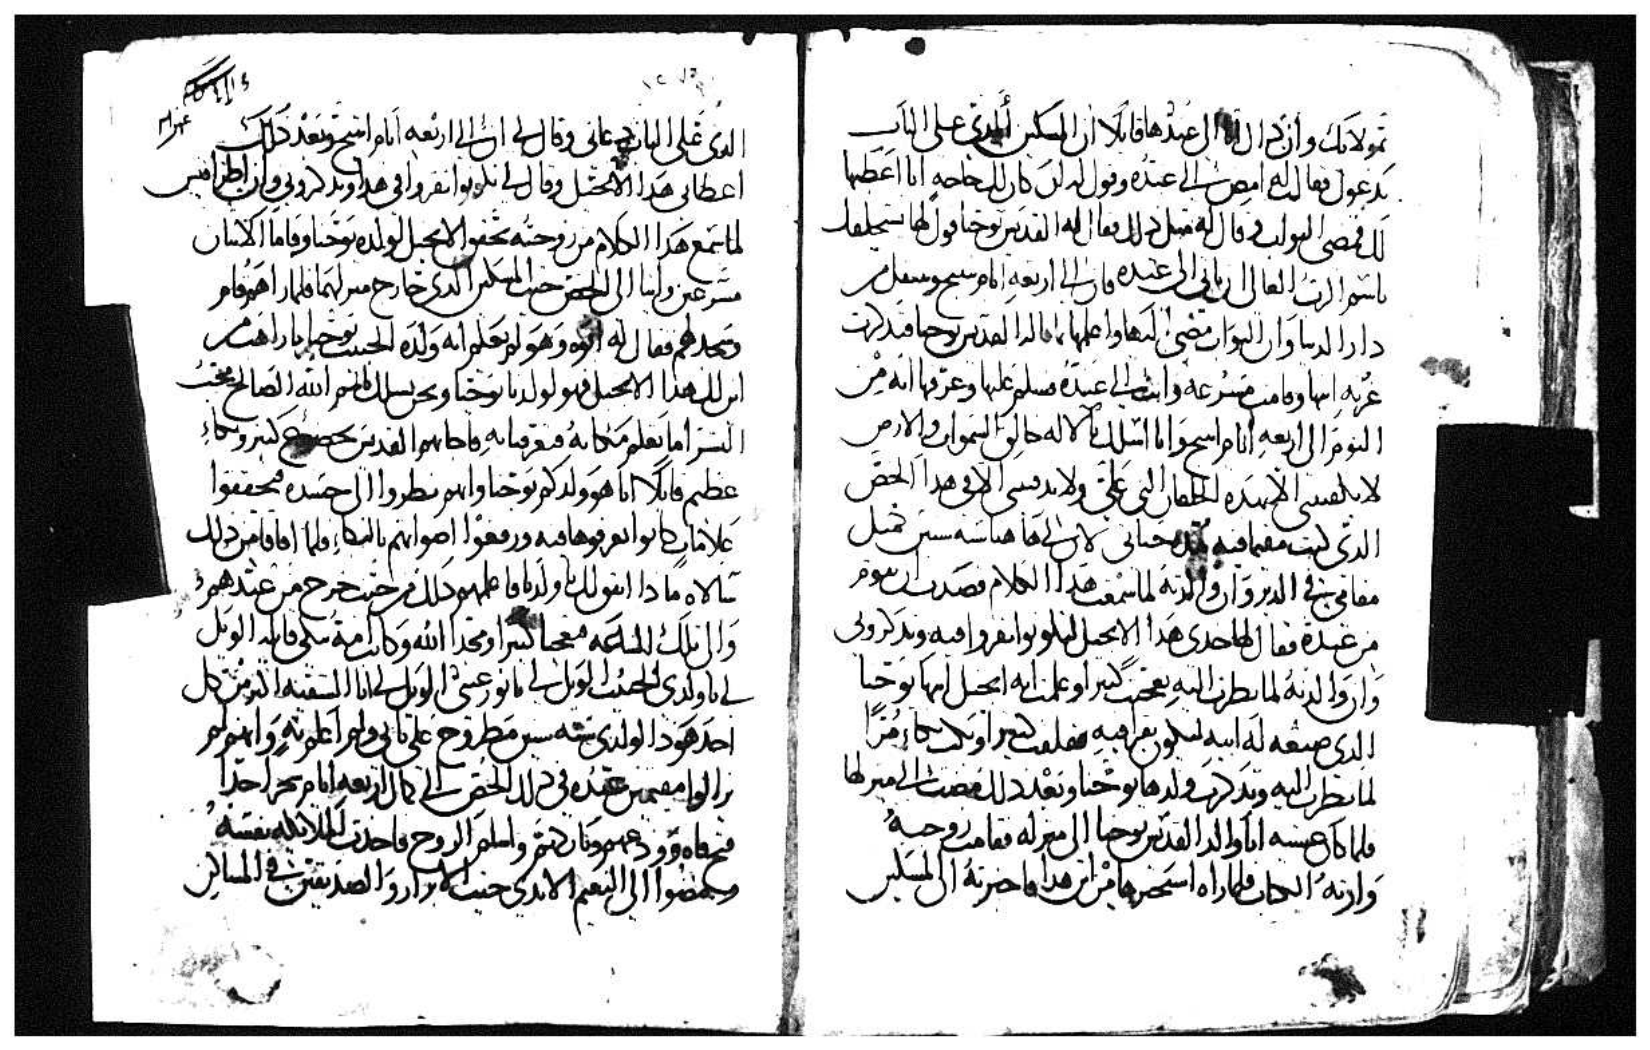 تمولاتك وان ذلك ال عندها قايلا ان المسكين الدي على الباب
يدعوك فقالت له امض الى عنده وقول له ان كان لك حاجه انا اعطيها
لك فمضى البواب وقال له مثل ذلك فقال له القديس يوحنا قول لها
باسم الرب العالي ان تاتي الى عنده فان الى اربعه ايام اتنيح وينتقل من
دار الدنيا وان البواب مضى اليها واعلمها بما قاله القديس يوحنا فتدكرت
غربه ابنها وقامت مسرعه واتت الى عنده فسلم عليها وعرفها انه من
اليوم الى اربعه ايام اتنيح وانا اسلك بالاله خالق السموات والارض
لا تكفنيني الا بهده الخلقان التي علي ولا تدفنيني الا في هدا الخص
الدي كنت مقيما فيه مده حياتي لان لي هاهنا سته سنين قبل
مقامي في الدير وان والدته لما سمعت هدا الكلام قصدت ان تقوم
من عنده فقال لها خدي هدا الانجيل لتكونوا تقروا فيه وتدكروني
وان والدته لما نظرت اليه تعجبت كتيرا وعلمت انه انجيل ابنها يوحنا
الدي صنعه له ابيه ليكون يقرا فيه فقلقت كتيرا وبكت بكاء مرا
لما نظرت اليه وتدكرت ولدها يوحنا وبعد دلك مضت الى منزلها
فلما كان عشيه اتا والد القديس يوحنا الى منزله فقامت زوجته
وارته الكتاب فلما راه استخبرها من اين هدا فاخبرته ان المسكين
الدي على الباب دعاني وقال لي ان الى اربعه ايام اتنيح وبعد دلك
اعطاني هدا الانجيل وقال لي تكونوا تقروا في هدا وتدكروني وان اطرافيس
لما سمع هدا الكلام من زوجته تحققوا الانجيل لولده يوحنا وقاما الاتنان
مسرعين واتيا الى الخص حيت المسكين الدي خارج منزلهما فلما راهم قام
وسجد لهم فقال له ابوه وهو لم يعلم انه ولده الحبيب يوحنا يا راهب من
اين لك هدا الانجيل فهو لولدنا يوحنا ونحن نسلك باسم الله الصالح محب
البشر اما تعلم مكانه فتعرفنا به فاجابهم القديس بخضوع كتير وبكاء
عظيم قايلا انا هو ولدكم يوحنا وانهم نظروا الى جسده فتحققوا
علامات كانوا يعرفوها فيه ورفعوا اصواتهم بالبكاء فلما افاقا من دلك
سالاه مادا اتفق لك يا ولدنا فاعلمهم دلك من حيت خرج من عندهم
والى تلك الساعه فتعجبا كتيرا ومجدا الله وكانت امه تبكي قايله الويل
لي يا ولدي الحبيب الويل لي يا نور عيني الويل لي انا الشقيه اكتر من كل
احد هودا لولدي سته سنين مطروح على بابي ولم اعلم به وانهم لم
يزالوا مقيمين عنده في دلك الخص الى كمال اربعه ايام
فتح فاه وودعهم وتاركهم واسلم الروح فاخدت الملايكه نفسه
ومضوا الى النعيم الابدي حيت الابرار والصديقين في المساكن